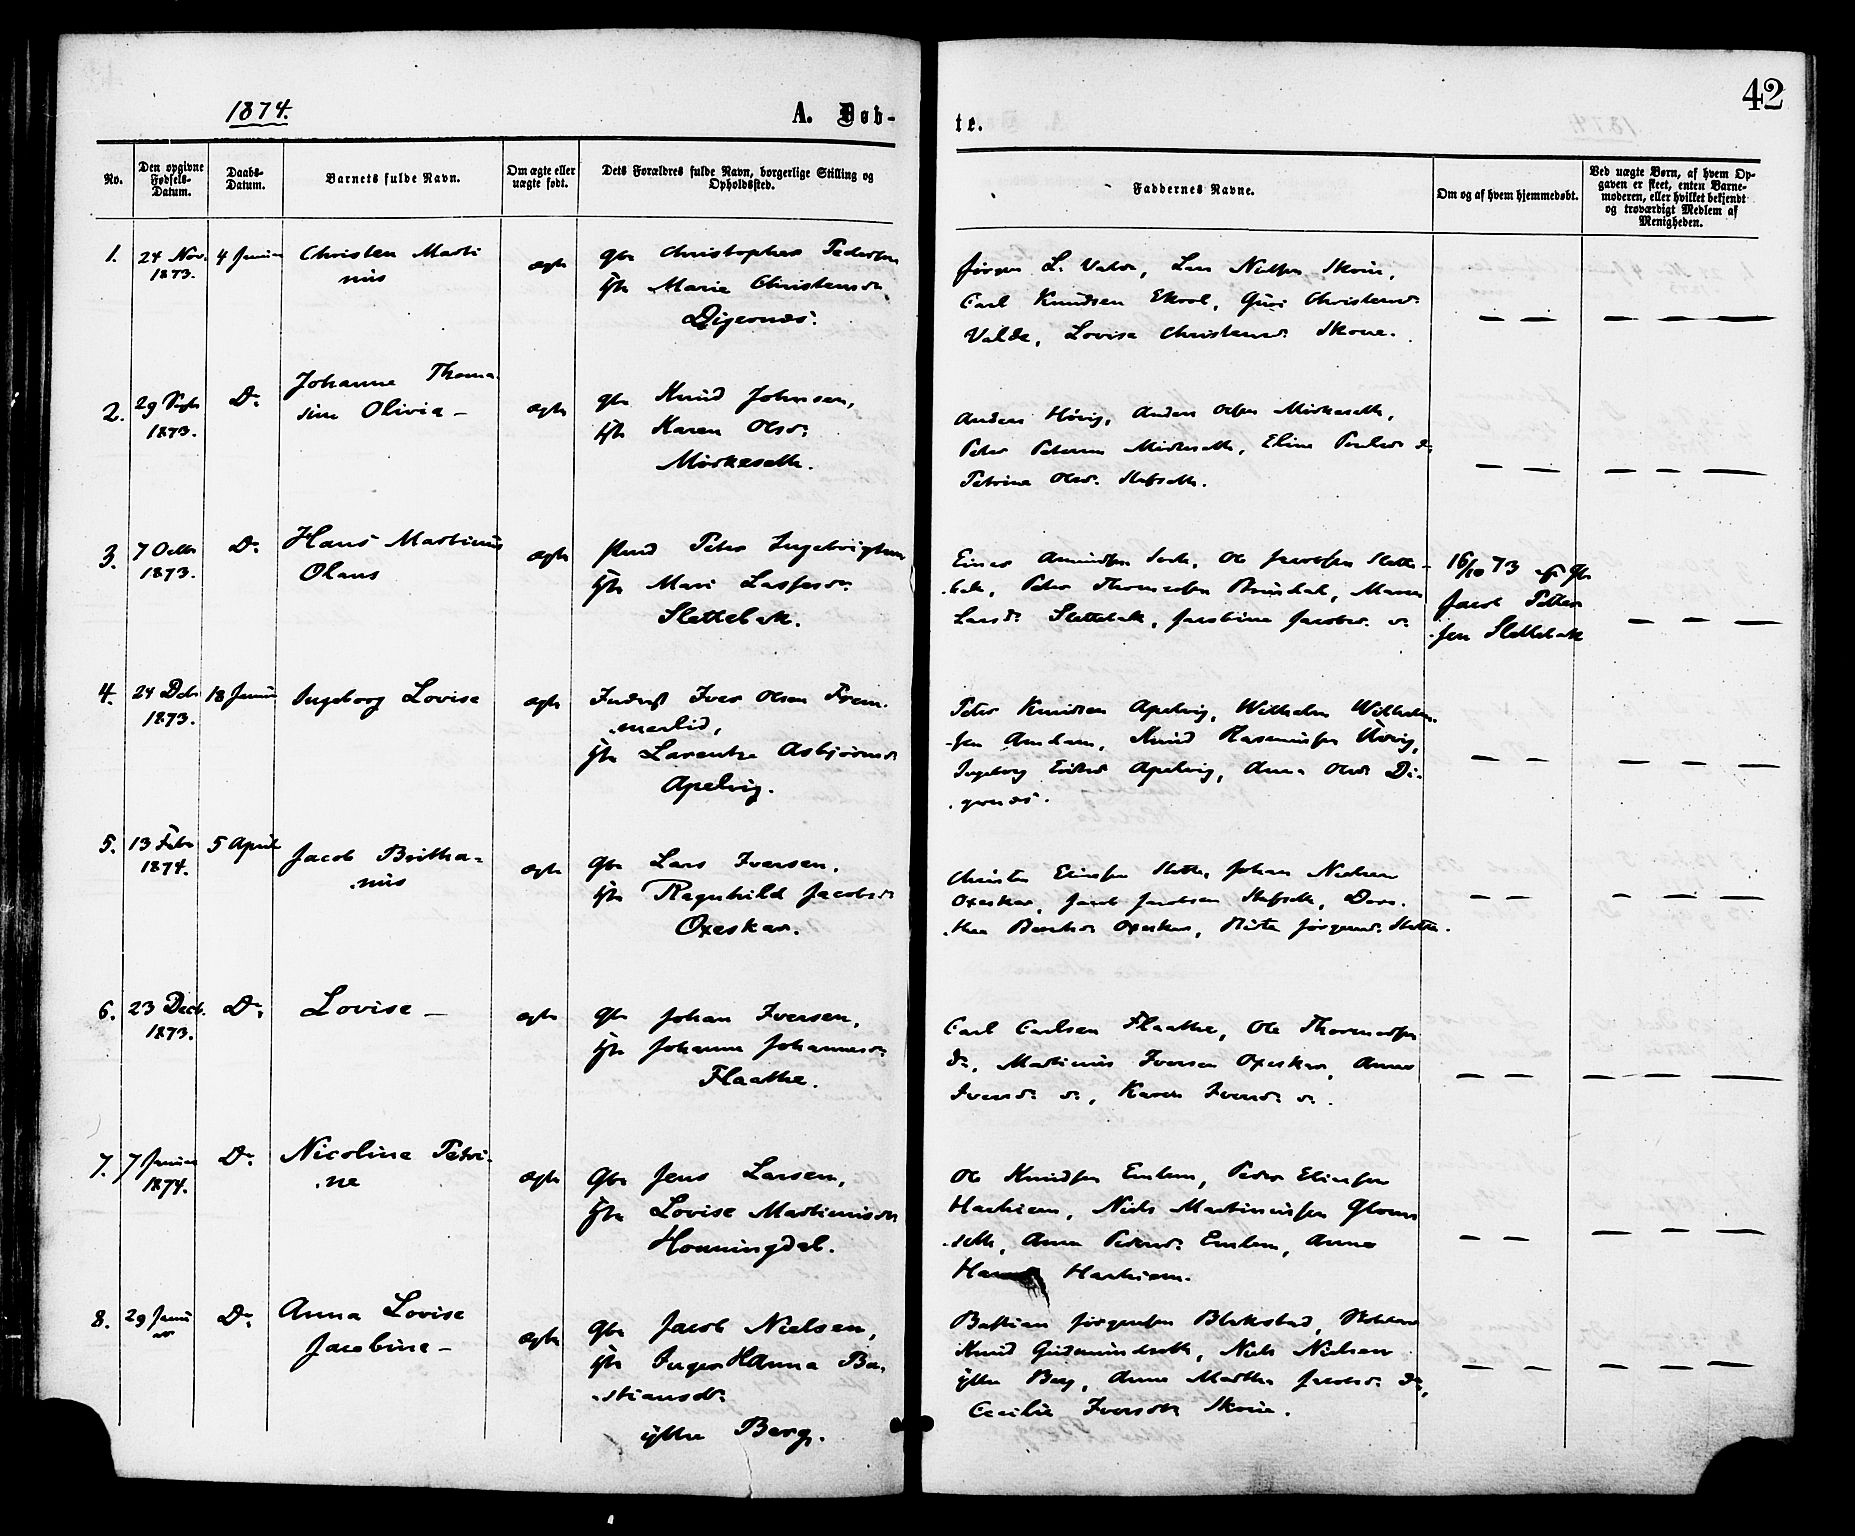 1874.
A. Døb-
te.
42
No.
Den opgivne Fødsels-Datum.
Daabs-Datum.
Barnets fulde Navn.
Om ægte eller uægte født.
Dets Forældres fulde Navn, borgerlige Stilling og Opholdssted.
Faddernes Navne.
Om og af hvem hjemmedøbt.
Ved uægte Børn, af hvem Op-
gaven er skeet, enten Barne-
moderen, eller hvilket bekjendt
og troværdigt Medlem af
Menigheden.
1.
24 Nov.
1873.
4 Januar
Christen Marti
nus
ægte
Gbr Christopher Pedersen
Marie Christensdr
Digernæs.
Jørgen L. Valde, Lars Nielsen Skoue,
Carl Knudsen Ekrol, Guri Christensd.
Valde, Lovise Christensd. Skoue.
2.
29 Sept
1873.
Do.
Johanne Thoma-
sine Olivia -
ægte
Gbr Knud Johnsen,
Karen Olsdr
Mørkeseth.
Anders Høvig, Anders Olsen Mørkeseth,
Peter Petersen Mørkeseth, Eline
Petrine Olsd.
3.
7 Octbr
1873.
Do.
Hans Martinus
Olaus
ægte
Peter Ingebrigtsen
Mari Lassesdr
Slettebak.
Einar Amundsen Ole Jacobsen Slette-
bak, Peter Thomassen Brusdal, Maren
Larsd. Slettebak, Jacobine Jacobsd. do.
16/10 73 af Gbr
Jacob Petter
sen Slettebak
4.
24 Debr
1873.
18 Januar
Ingeborg Lovise
ægte
Inderst Iver Olsen Frem-
merlid,
Laurentze Asbjørnsdr
Apelvig.
Peter Knudsen Apelvig, Wilhelm Wilhelm-
sen Amdam, Knud Rasmussen
Ingeborg Apelvig, Anna Olsdr Di-
gernæs.
5.
13 Febr
1874.
5 April
Jacob Britha-
nus
ægte
Gbr Lars Iversen,
Ragnhild Jacobsdr
Oxeskar.
Christen Eliassen Johan Nielsen
Oxeskar, Jacob Jacobsen Dor-
thea Oxeskar,
6.
23 Decb.
1873.
Do.
Lovise -
ægte
Gbr Johan Iversen,
Johanne Johannesdr
Flaathe.
Carl Carlsen Flaathe, Ole Thomassen
do, Martinus Iversen Oxeskar, Anne
Iversd. do, Karen Iversd. do.
7.
7 Januar
1874.
Do.
Nicoline Petri-
ne
ægte
Gbr Jens Larsen,
Lovise Martinusdr
Honningdal.
Ole Knudsen Emlem, Peder Eliassen
Harhiem, Niels Martinussen Gloms
seth, Anna Pedersd. Emlem, Anne
Harhiem.
8.
29 Janu
ar
Do.
Anna Lovise
Jacobine -
ægte
Gbr Jacob Nielsen,
Inger Hanna Ba-
stiansdr
ytre Berg.
Bastian Jørgensen Blakstad,
Knud Gudmundseth, Niels Nielsen
ytre Berg, Anne Martha Jacobsd. do,
Cecilie Iversdtr Skoue.